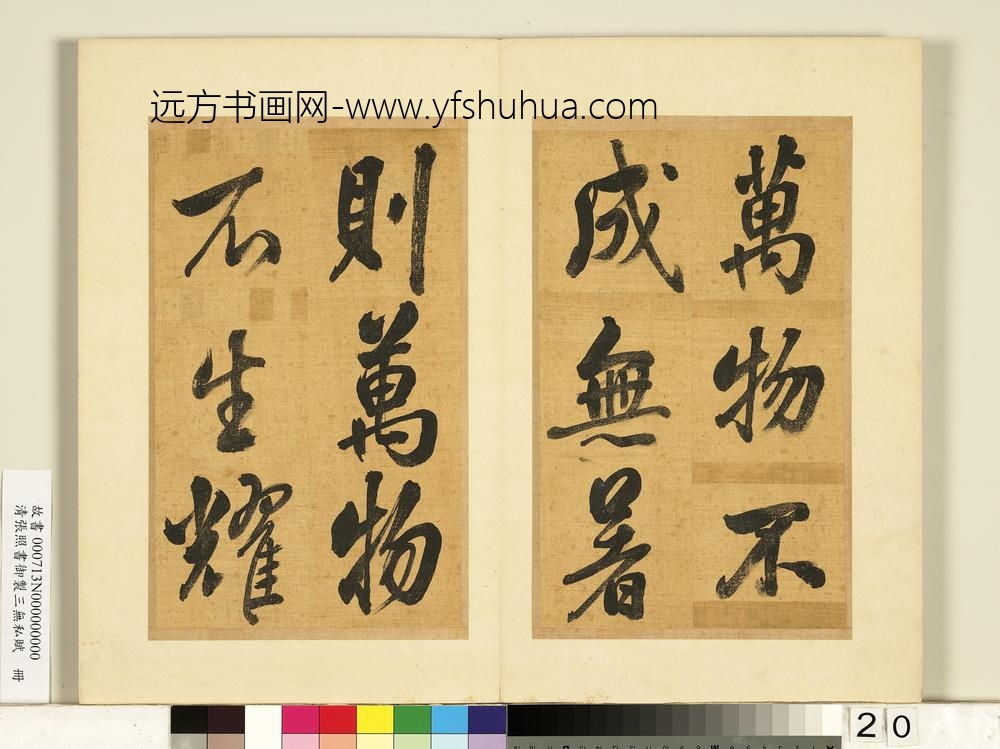 远方书画网-www.yfshuhua.com
萬物不
成無暑
則萬物
不生耀
故書 000713N000000000
清張照書御製三無私賦 冊
20